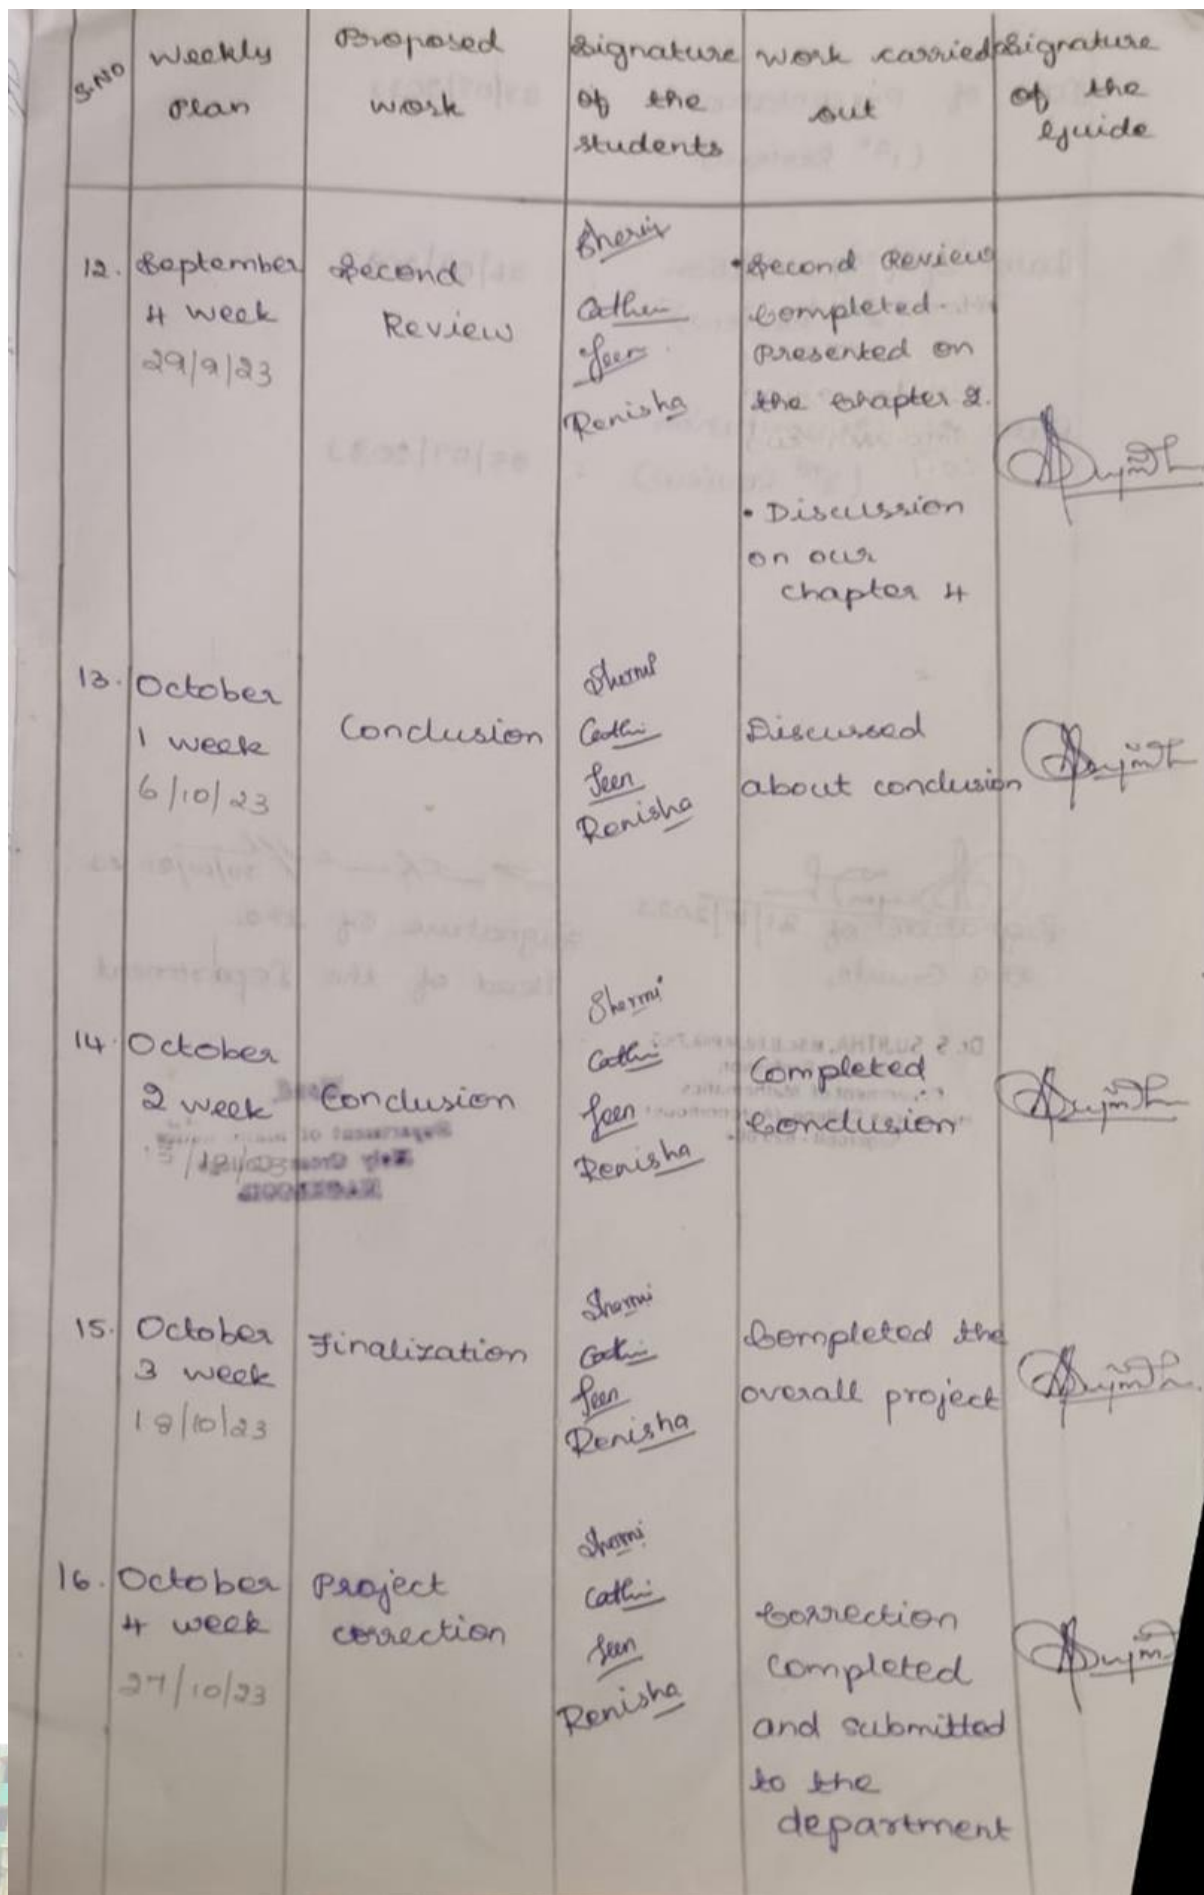 S.NO
Weekly
Plan
Proposed
work
Signature
of the
students
work carried
out
Signature
of the
Guide
12.
September
4 week
29/9/23
Second
Review
Cathrin
Jeen
Renisha
• Second Review
Completed.
Presented on
the chapter 2.
• Discussion
on our
chapter 4
13.
October
1 week
6/10/23
Conclusion
Shermi
Cathi
Jeen
Renisha
Discussed
about conclusion
14.
October
2 week
Conclusion
Shermi
Cathi
Jeen
Renisha
Completed
Conclusion
15.
October
3 week
18/10/23
Finalization
Shermi
Cathi
Jeen
Renisha
Completed the
overall project
16.
October
4 week
27/10/23
Project
correction
Shermi
Cathi
Jeen
Renisha
Correction
completed
and submitted
to the
department